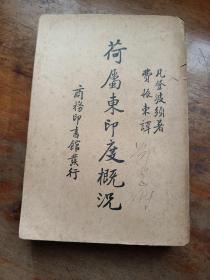 凡登波須著
費振東譯
荷屬東印度概況
商務印書館發行